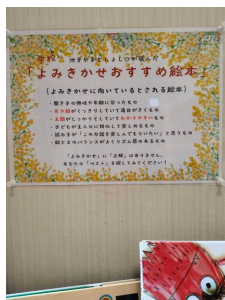 「よみきかせおすすめ絵本」
(よみきかせに向いているとされる絵本)
・聞き手の興味や年齢に合ったもの
・絵や話がくっきりしていて遠目がきくもの
・主題がしっかりとしていてわかりやすいもの
・子どもが主人公に同化して楽しめるもの
・読み手が「このお話を楽しんでもらいたい」と思うもの
・絵と文のバランスがよくリズム感のあるもの
「よみきかせ」に「正解」はありません。
あなたの「ベスト」を探してみてください!